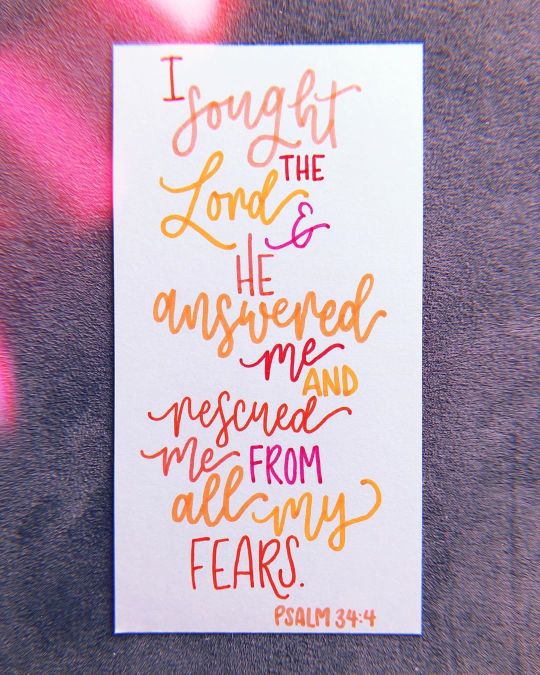 I
sought
THE
Lord &
HE
answered
me
AND
rescued
me FROM
all my
FEARS.
PSALM 34:4